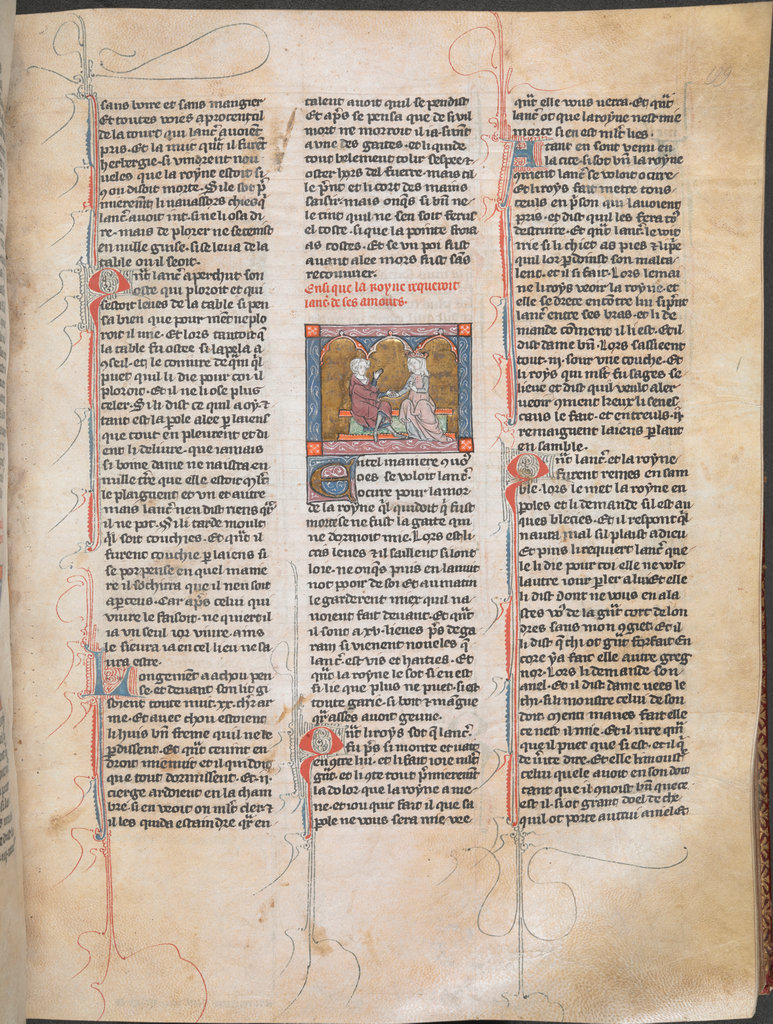 sans boire et sans mangier
Et toutes voies aprocent al
de la tourt qui lanc̄ auoient
pris. Et la nuit qn̄t il furent
herbergie si vindrent nou
ueles que la royne estoit si
9 on disoit morte. S'il se
lanc̄ auoit mr̄t si ne li osa di
re. mais de plorer ne se tenist
en nulle guise. si se leua de la
table ou il seoit.
Qn̄t lanc̄ aperchut son
oste qui ploroit et qui
sestoit leues de la table si pen
sa bien que pour nient ne plo
roit il mie. Et lors tantost q̄
la table fu ostee si lapela a
9seil. et le coniure de
puet quil li die pour coi il
ploroit. Et il ne li ose plus
celer. Si li dist ce quil a oy. τ
tant est la pole alee p̄ laiens
que tout en pleurent et di
ent li deluure. que iamais
si bone dame ne naistra en
mille
le plaignent et vn et autre
mais lanc̄ nen dist riens
il ne pot. Si li tarde moult
qil soit couchies. Et qn̄t il
furent couchie p̄ laiens si
se porpense en quel manie
re il socirra que il nen soit
aperceus. Car ap̄s celui qui
viure le faisoit. ne quert il
ia vn seul ior viure. ains
le sieura ia en cel lieu ne sa
ura estre.
Longement a a chou pen
se. et deuant son lit gi
soient toute nuit .xx. ch̄r ar
me. Et auec chou estoient
li huis bn̄ freme quil ne le
p̄dissent. Et qn̄t ceuint en
droit mienuit et il quidoit
que tout dormissent. Et .ii.
cierge ardoient en la cham
bre. si en veoit on mlt̄ cler. τ
il les quida estaindre qr̄ en
talent auoit quil se pendist
Et ap̄s se pensa que de si vil
mort ne morroit il ia. si vint
a vne des gaites. et li quide
tout belement tolir sespee. τ
oster hors del fuerre. mais cil
le p̄nt et li cort des mains
saisir. mais onq̄s si bn̄ ne
le tint quil ne sen soit ferus
el coste. si que la pointe froia
as costes. Et se vn poi fust
auant alee mors fust sās
recouurer.
Ensi que la royne requeroit
lanc̄ de ses amours.
En tel maniere 9 uos
oes. se voloit lanc̄.
ocirre pour lamor
de la royne ql̄ quidoit q̄ fust
morte se ne fust la gaite qui
ne dormoit mie. Lors est li
cas leues τ il saillent si lont
loie. ne onques puis en la nuit
not pooir de soi. Et au matin
le garderent miex quil na
uoient fait deuant. Et qn̄t
il sont a .xv. lieues p̄s de ga
ram si vienent noueles q̄
lanc̄. est vis et haities. Et
qn̄t la royne le sot si en est
si lie que plus ne puet. si est
toute garie. si boit τ mag̅ue
qr̄ asses auoit geune.
Qn̄t li roys sot q̄ lanc̄.
fu p̄s si monte et vait
en9tre lui. et li fait ioie mlt̄
gn̄t. et li 9te tout p̄mierem̄t
la dolor que la royne a me
ne. et iou quit fait il que sa
pole ne vous sera mie vee
qn̄t elle vous uerra. Et qn̄t
lanc̄ ot que la royne nest mie
morte si en est mlt̄ lies.
Atant en sont venu en
la cite. si sot bn̄ la royne
9ment lanc̄ se voloit ocirre.
Et li roys fait metre tous
ceuls en p̄son qui lauoient
pris. et dist quil les fera to9
destruire. Et qn̄t lanc̄ le voit
mie si li chiet as pies τ li p̄e
quil lor p̄doinst son malta
lent. et il si fait. Lors lemai
ne li roys veoir la royne. et
elle se drece en9tre lui si p̄nt
lanc̄ entre ses bras. et li de
mande 9ment il li est. Et il
dist dame bn̄. Lors sassieent
tout .iii. sour vne couche. Et
li roys qui mlt̄ fu sages se
lieue et dist quil veult aler
veoir 9ment kex li senes
caus le fait. et en treuls .ii.
remaignent laiens p̄lant
en samble.
Qn̄t lanc̄. et la royne
furent remes en sam
ble. lors le met la royne en
poles et li demande sil est au
ques blecies. Et il respont ql̄
naura mal sil plaist a dieu
Et puis li requiert lanc̄ que
le li die pour coi elle ne volt
lautre iour p̄ler a lui. Et elle
li dist dont ne vous en ala
stes vo9 de la gn̄t cort de lon
dres sans mon 9giet. Et il
li dist q̄ chi ot gn̄t forfait. En
core y a fait elle autre greg
nor. Lors li demande. son
anel. Et il dist dame vees le
chi. si li monstre celui de son
doit. Menti maues fait elle
ce nest il mie. Et il iure qn̄
que il puet que si est. et il q̄
de uite dire. Et elle li moust̄
celui quele auoit en son doit
tant que il 9noist bn̄ quece
est il. si ot grant doel de che
quil ot porte autrui anel. Et